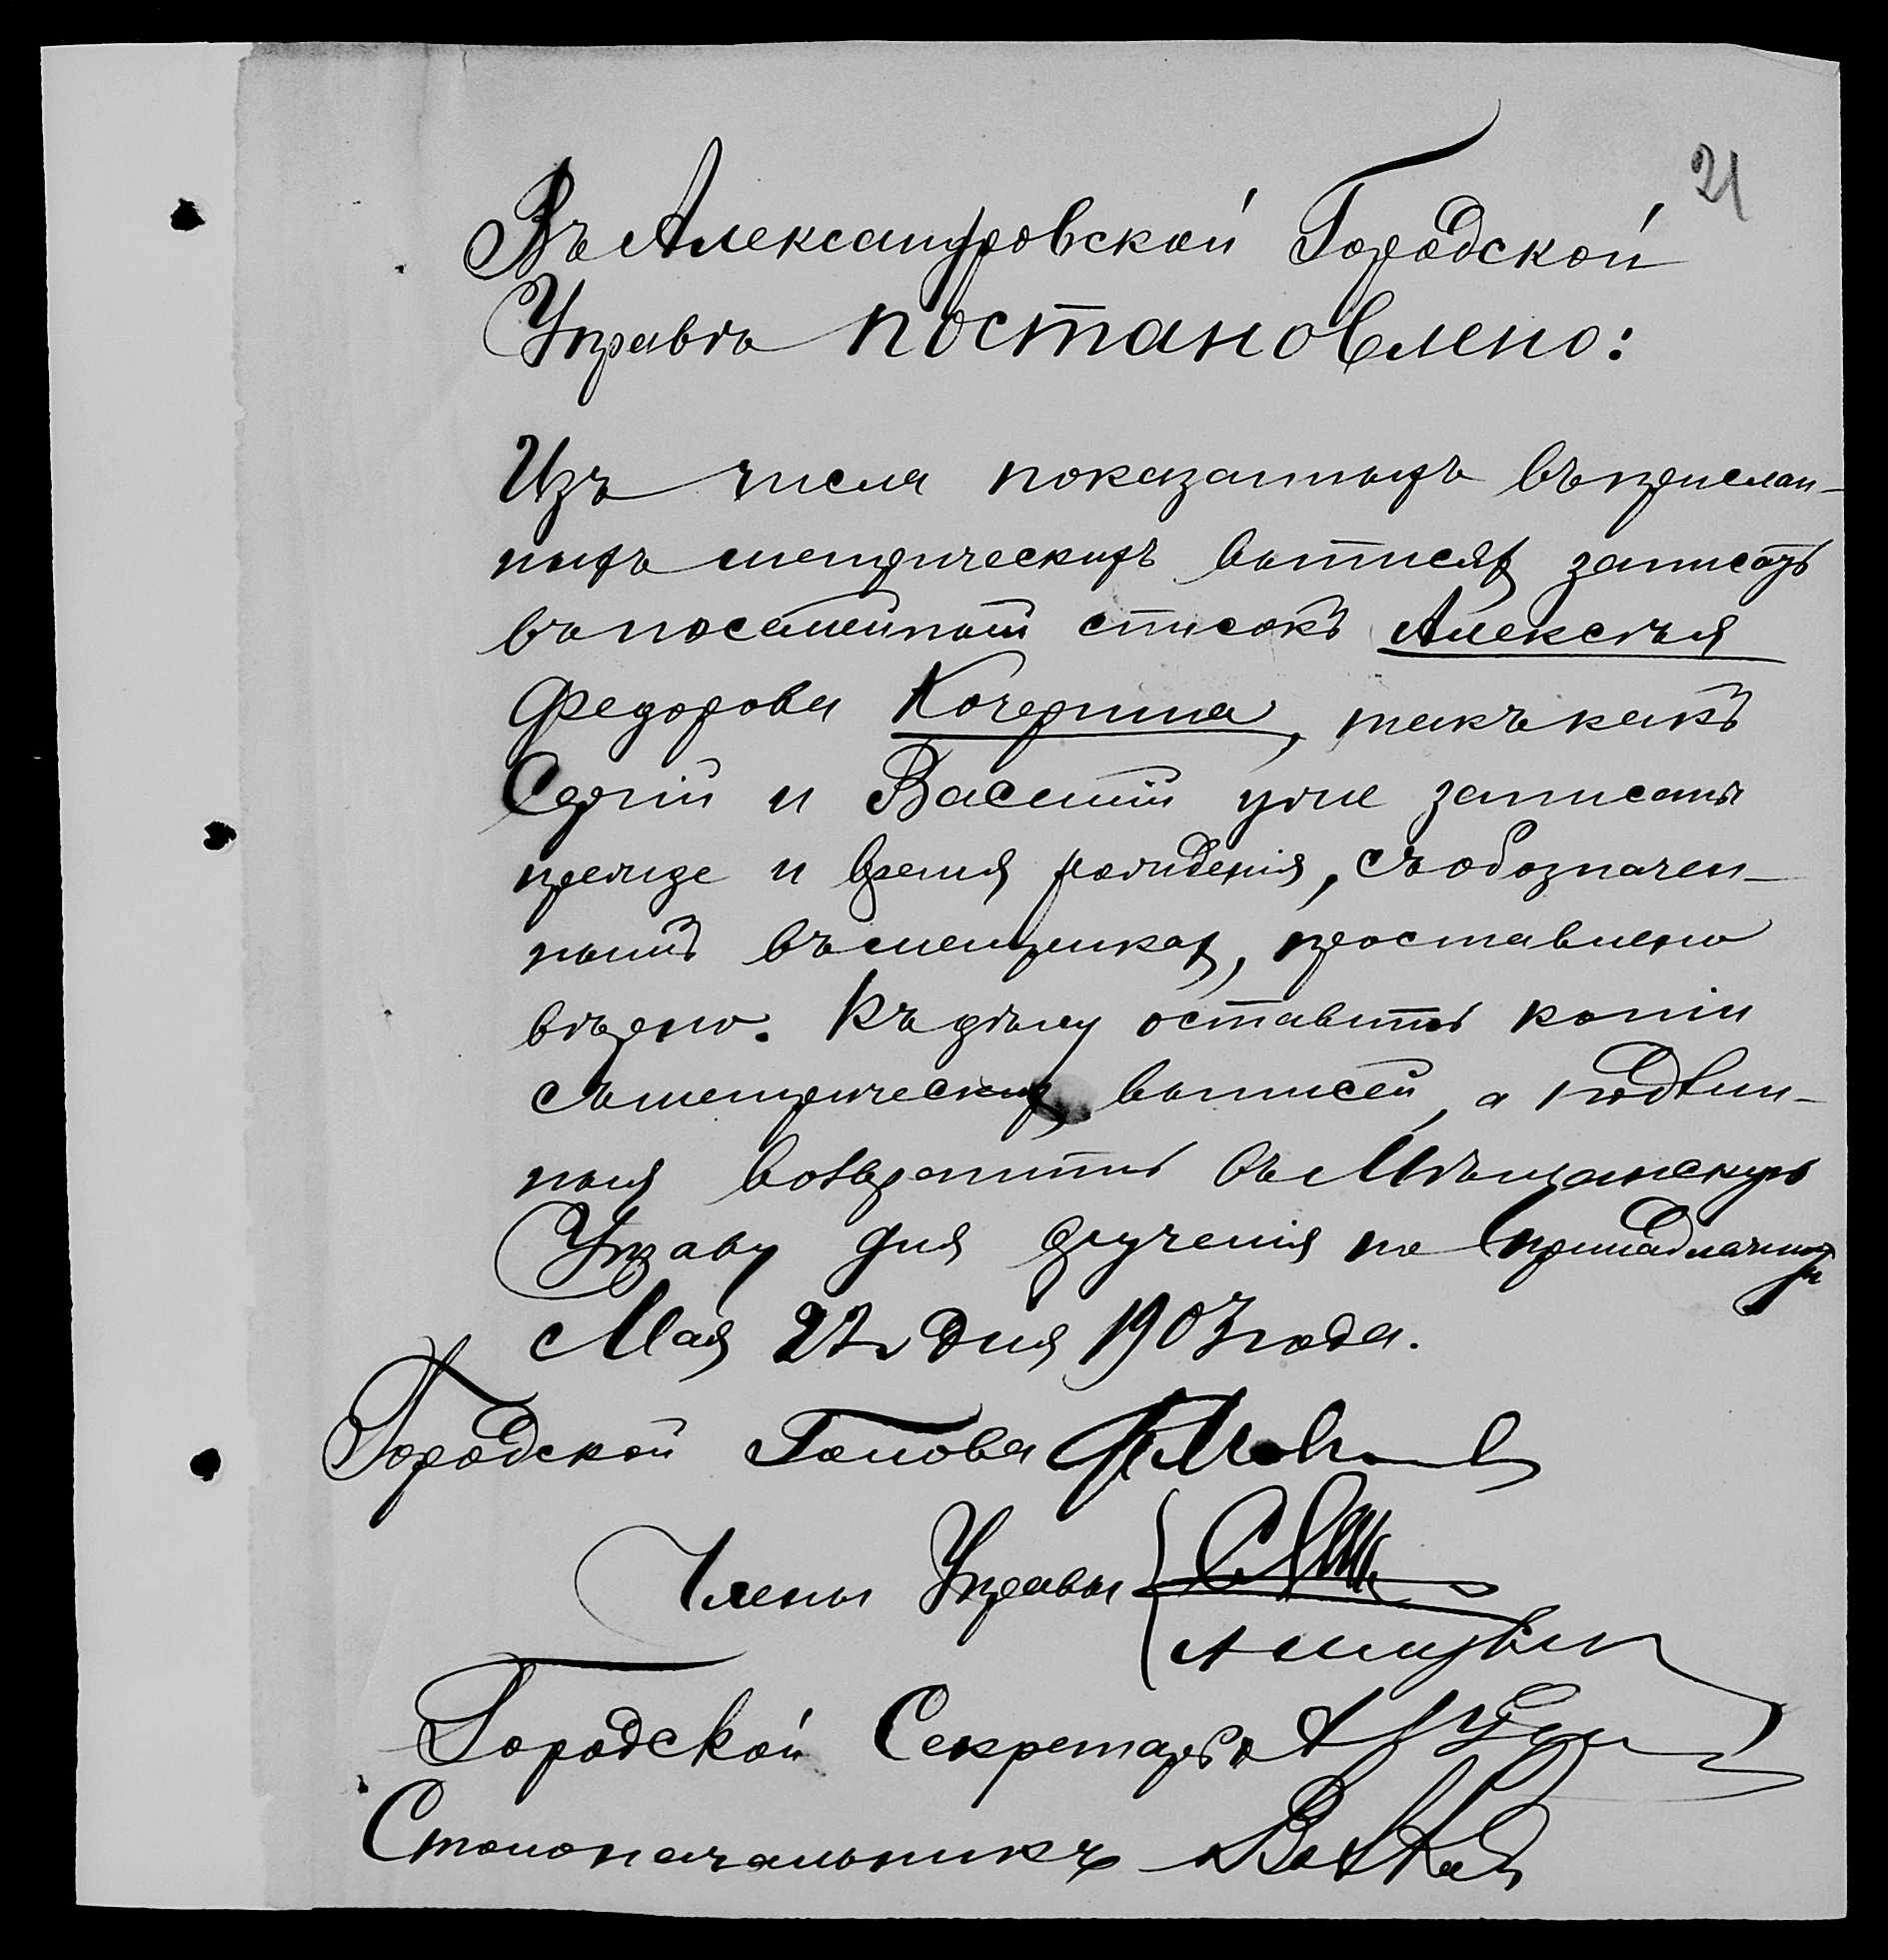 21
Въ Александровской Городской
Управѣ постановлено:
Изъ числа показанныхъ въ прислан-
ныхъ метрическихъ выписях записать
въ посемейный списокъ Алексѣя
Федорова Кочергина, такъ какъ
Сергій и Василій уже записаны
прежде и время рожденія, съ обозначен-
нымъ въ метриках, проставлено
вѣрно. Къ дѣлу оставить копіи
съ метрических выписей, а подлин-
ныя возвратить въ Мѣщанскую
Управу для врученія по принадлежности
Мая 27 дня 1903 года.
Городской Голова
Члены Управы
Городской Секретарь
Столоначальникъ